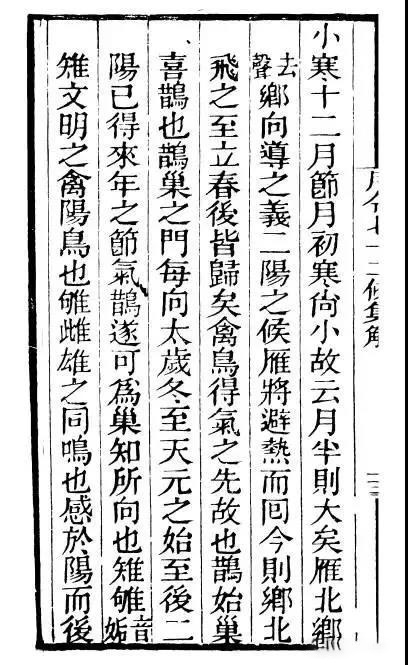 月令七十二候集解
小寒十二月節月初寒尚小故云月半則大矣雁北鄉
去聲鄉向導之義二陽之候雁將避熱而回今則鄉北
飛之至立春後皆歸矣禽鳥得氣之先故也鵲始巢
喜鵲也鵲巢之門每向太歲冬至天元之始至後二
陽已得來年之節氣鵲遂可爲巢知所向也雉雊音姤
雉文明之禽陽鳥也雊雌雄之同鳴也感於陽而後